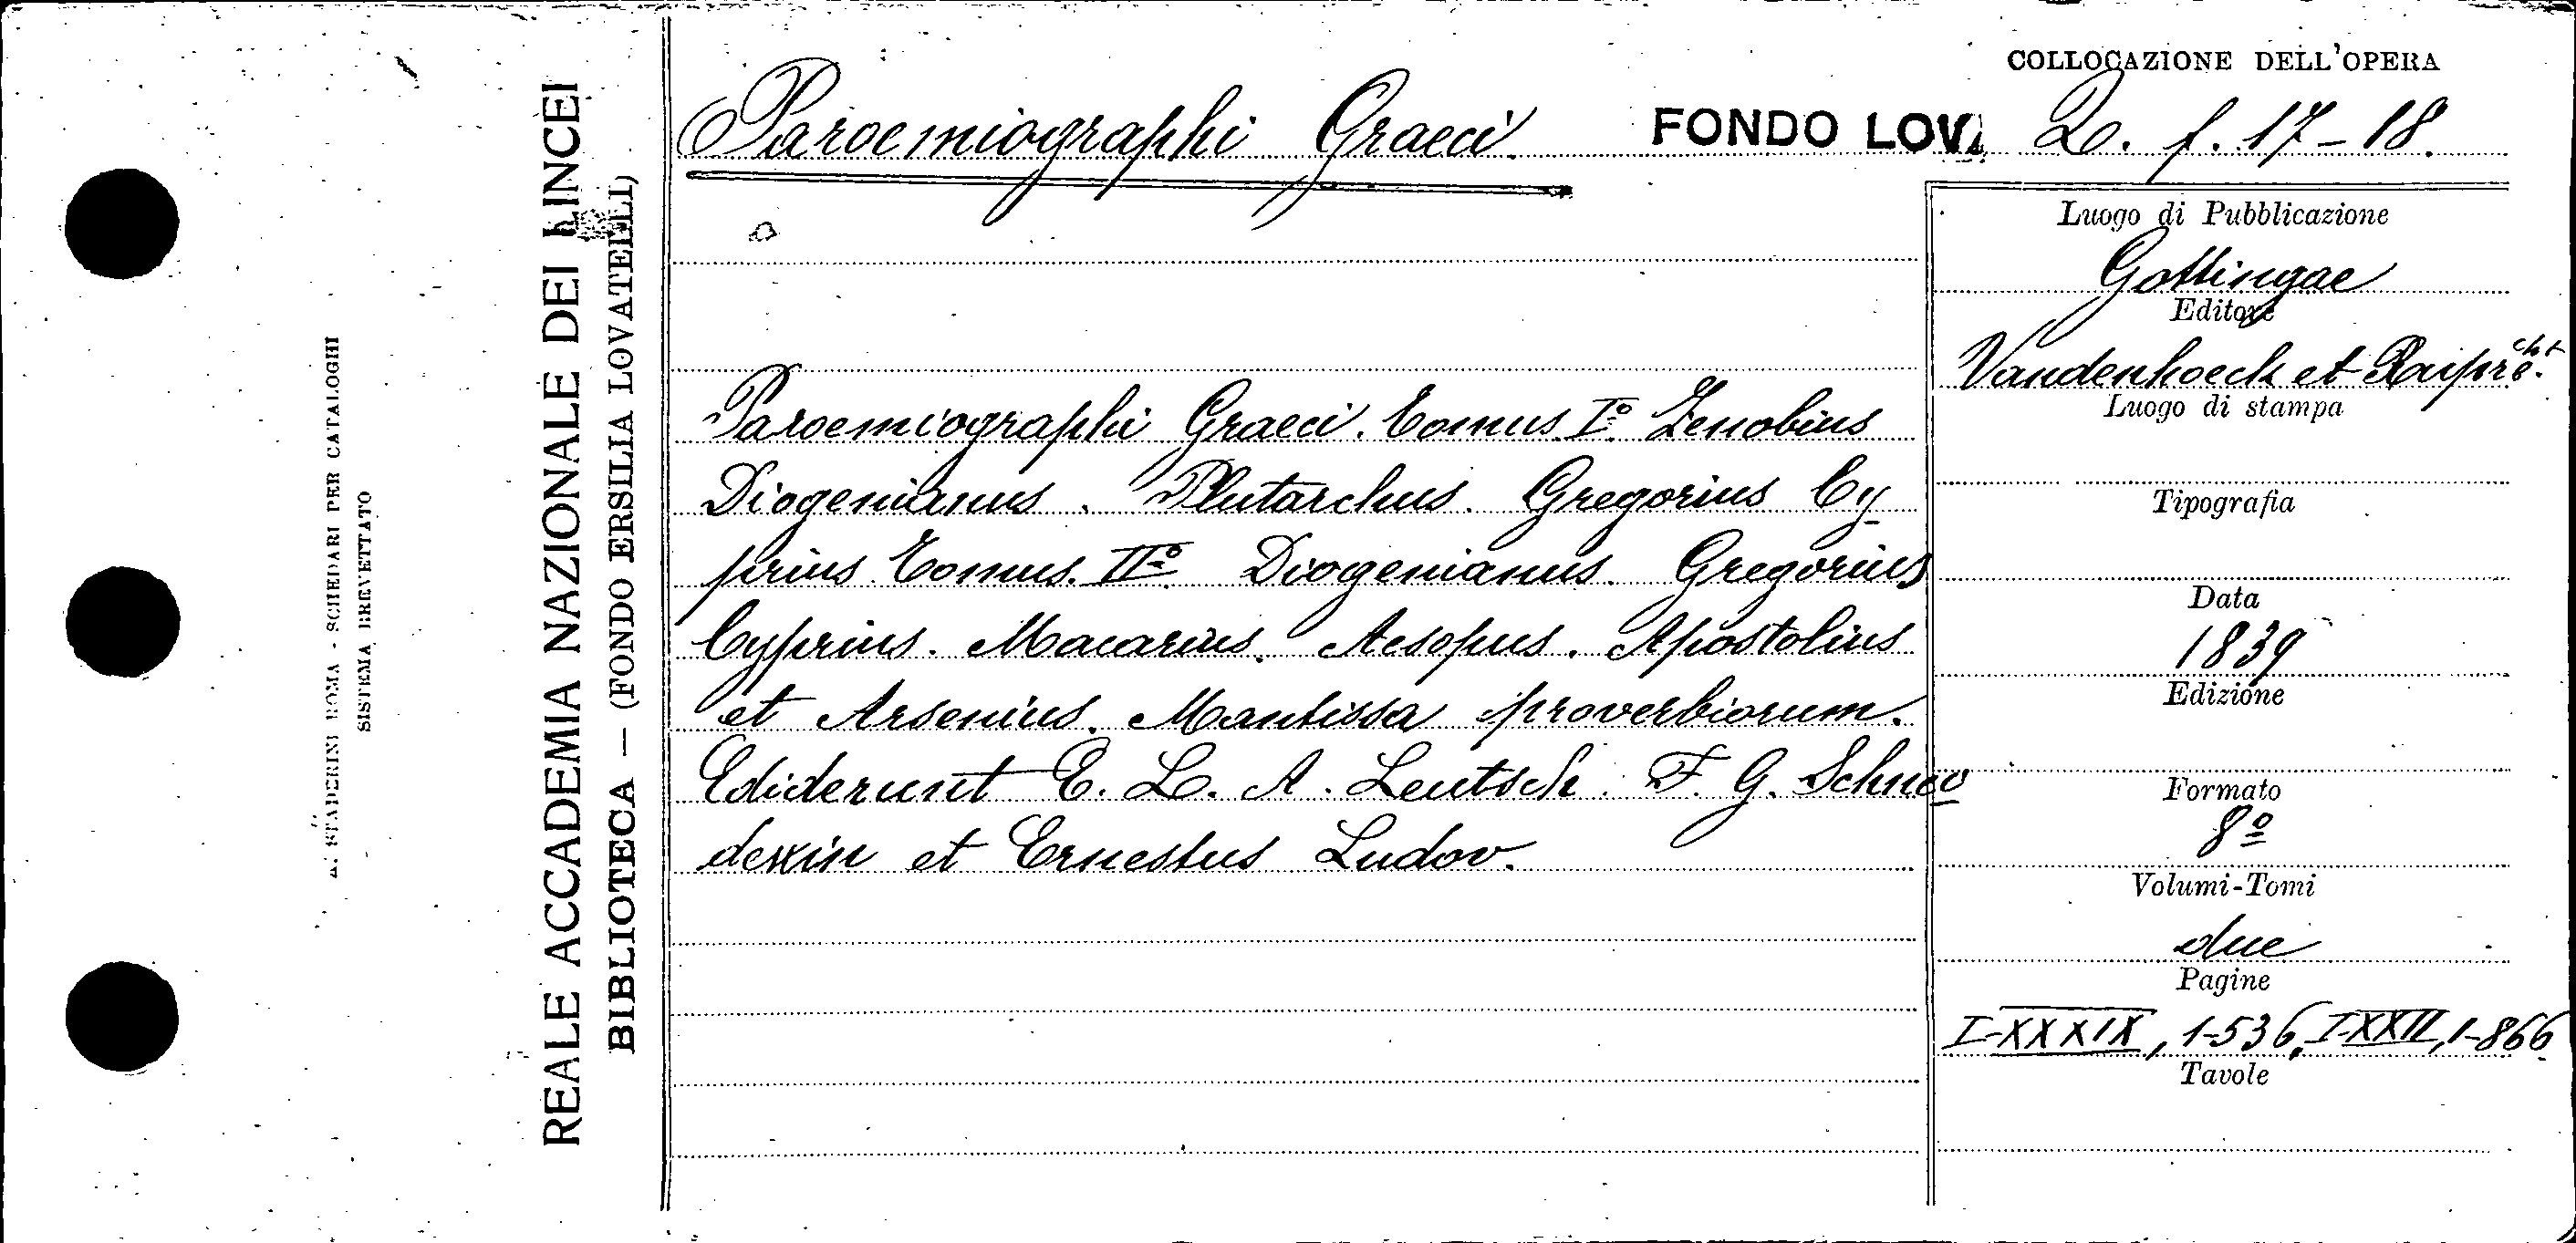 COLLOCAZIONE DELL'OPERA
Paroemiographi Graeci. FONDO LOV. 20. f. 17-18.
Luogo di Pubblicazione
Gottingae
Editore
Vandenhoeck et Rupre.cht
Luogo di stampa
Tipografia
Data
1839
Edizione
Formato
8º
Volumi-Tomi
due
Pagine
I-XXXIX, 1-536, I-XXII, 1-866
Tavole
Paroemiographi Graeci. Tomus Iº. Zenobius
Diogenianus. Plutarchus. Gregorius Cy
prius Tomus. IIº. Diogenianus. Gregorius
Cyprius. Macarius. Aesopus. Apostolius
et Arsenius. Mantissa proverbiorum.
Ediderunt E. L. A. Leutsch. F. G. Schnei
dewin et Ernestus Ludov.
REALE ACCADEMIA NAZIONALE DEI LINCEI
BIBLIOTECA — (FONDO ERSILIA LOVATELLI)
STADERINI ROMA - SCHEDARI PER CATALOGHI
SISTEMA BREVETTATO